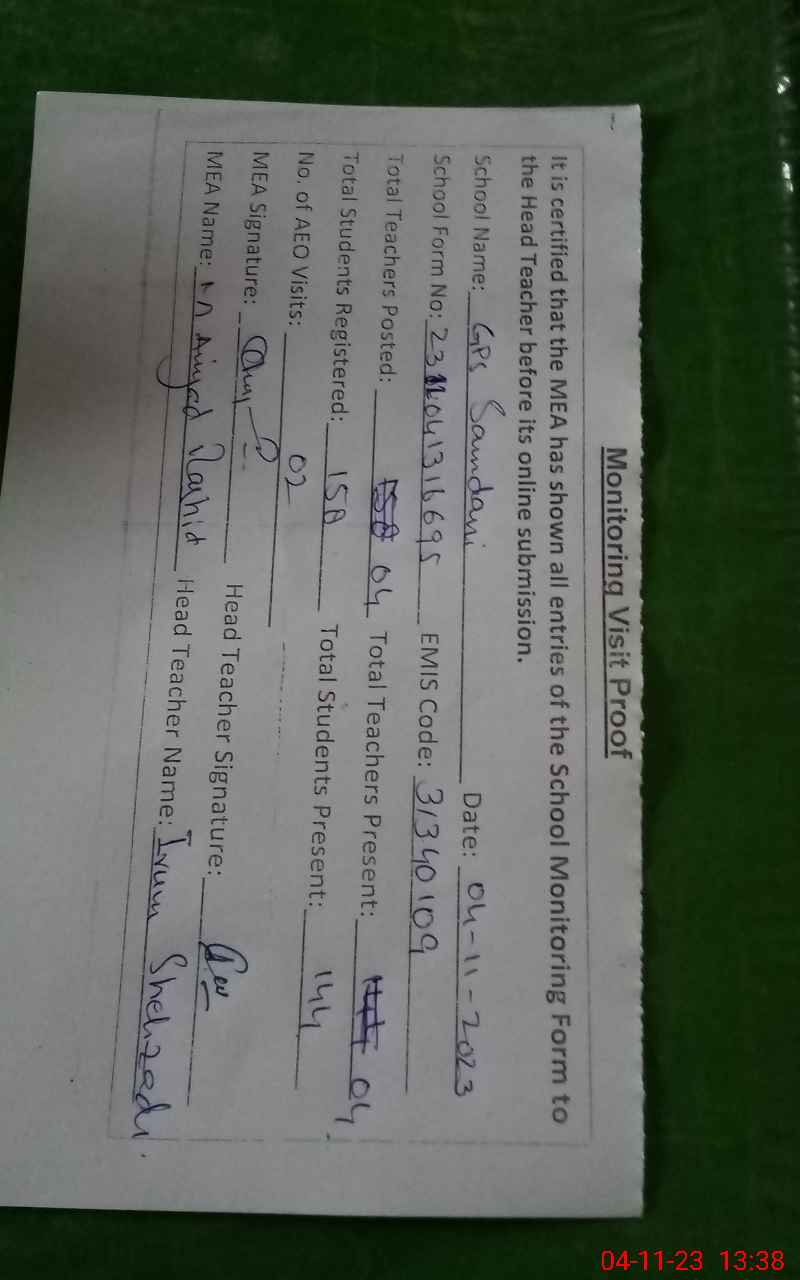 Monitoring Visit Proof
It is certified that the MEA has shown all entries of the School Monitoring Form to
the Head Teacher before its online submission.
School Name: GPS Samdani Date: 04-11-2023
School Form No: 231104131669S EMIS Code: 31340109
Total Teachers Posted: 04 Total Teachers Present: 04
Total Students Registered: 150 Total Students Present: 144
No. of AEO Visits: 02
MEA Signature: Head Teacher Signature:
MEA Name: M Amjad Rashid Head Teacher Name: Irum Shehzadi
04-11-23 13:38